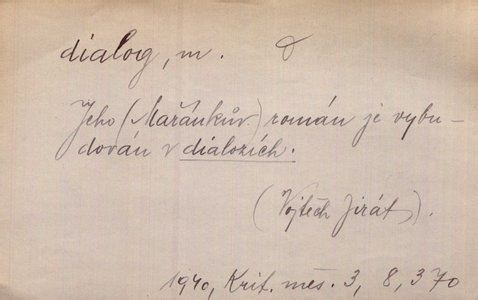 dialog, m.
Jeho (Mařánkův) román je vybu-
dován v dialozích.
(Vojtěch Jirát).
1940, Krit. měs. 3, 8, 370